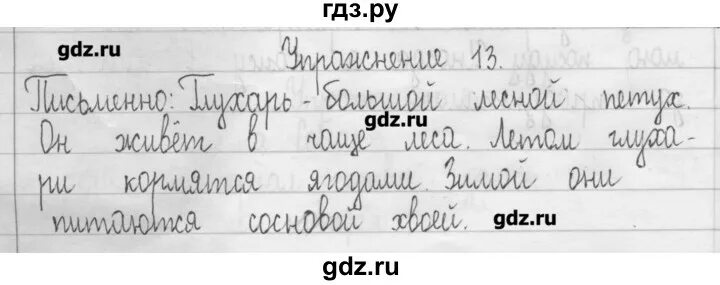 гдз.ру
gdz.ru
Упражнение 13.
Письменно: Глухарь - большой лесной петух.
gdz.ru
Он живёт в чаще леса. Летом глуха-
ри кормятся ягодами. Зимой они
питаются сосновой хвоей. gdz.ru
gdz.ru